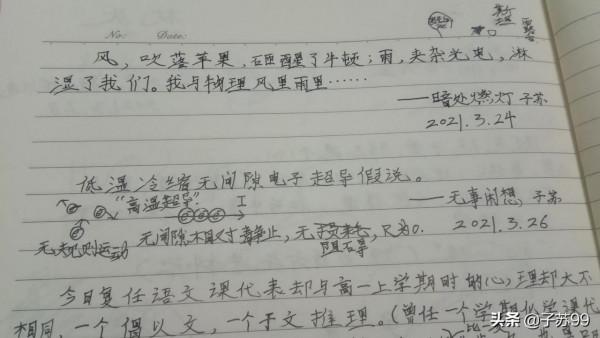 No: Date:
风，吹落苹果，砸醒了牛顿；雨，夹杂光电，淋
湿了我们。我与物理风里雨里……
——暗处燃灯 子苏
2021.3.24
低温冷缩无间隙电子超导假说。
"高温超导" I
——无事闲想 子苏
无规则运动 无间隙相对静止，无损耗，R为0.
2021.3.26
今日复任语文课代表却与高一上学期时的心理却大不
相同，一个偶以文，一个于文推理。（曾任一个学期化学课代
头条 @子苏99